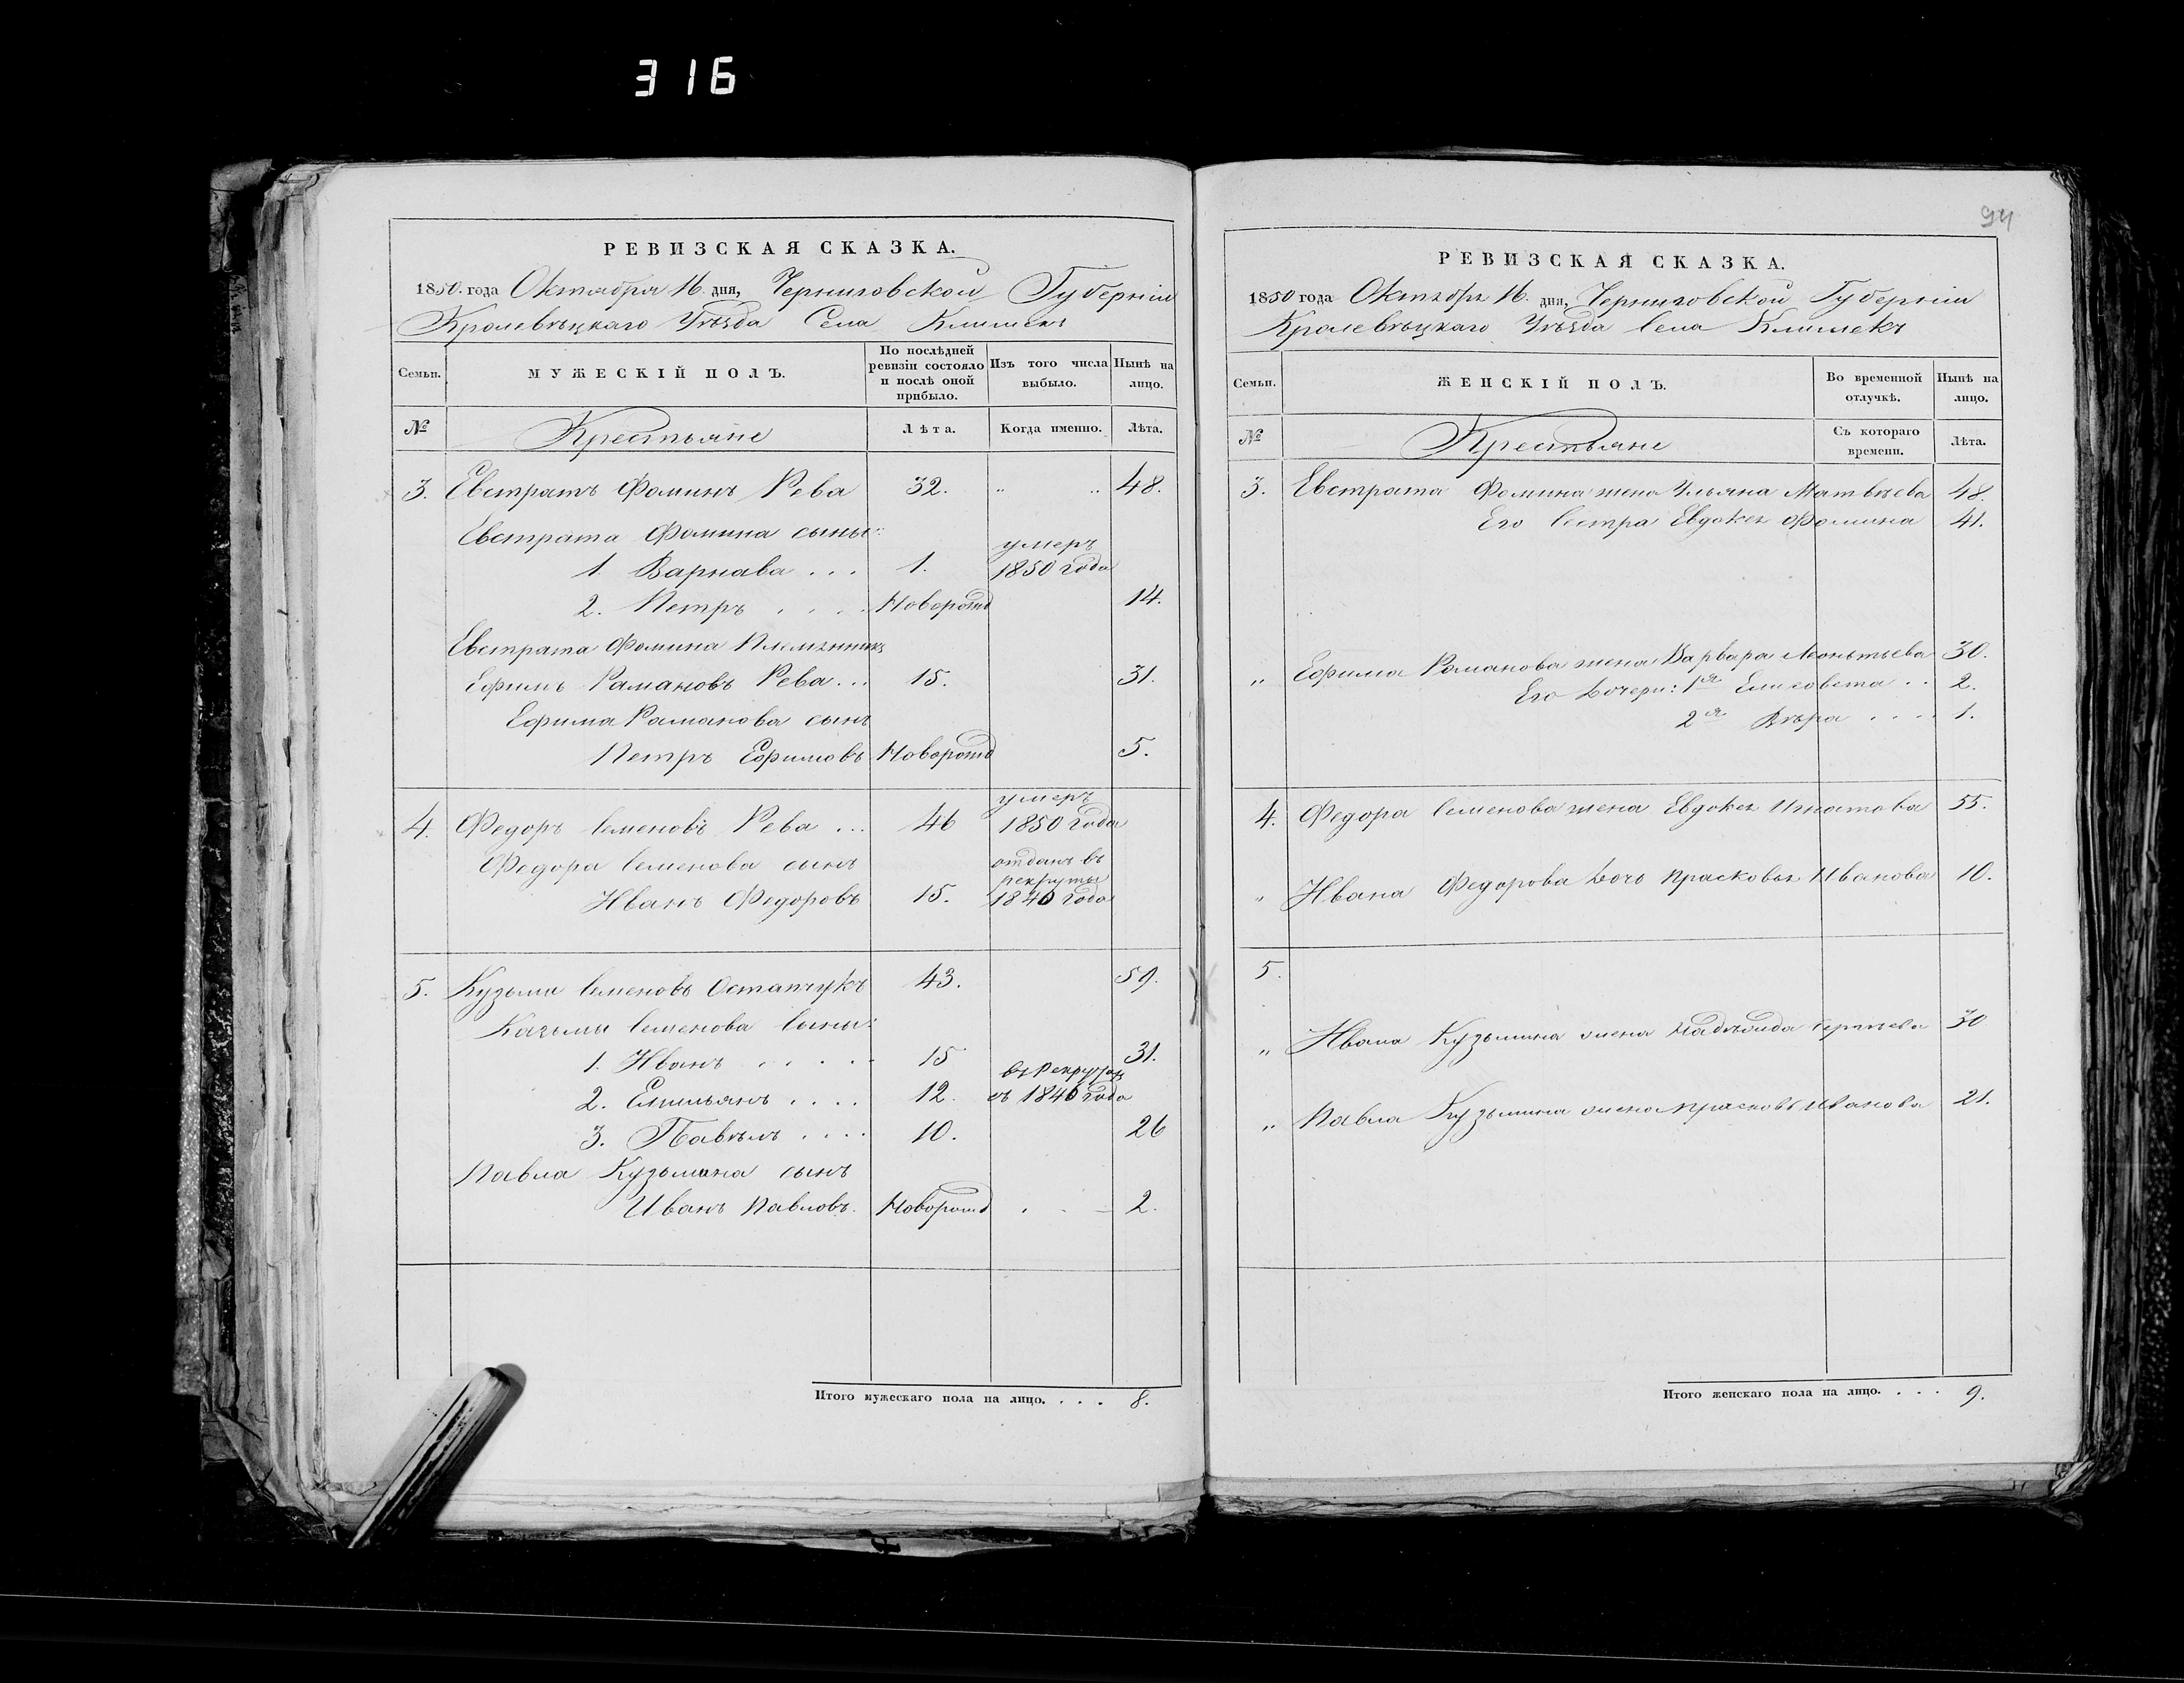 316
РЕВИЗСКАЯ СКАЗКА.
1850. года Октября 16. дня, Черниговской Губерніи
Кролевѣцкаго Уѣзда Села Клишекъ
Семьи.
МУЖЕСКІЙ ПОЛЪ.
По послѣдней ревизіи состояло и послѣ оной прибыло.
Изъ того числа выбыло.
Нынѣ на лицо.
№
Крестьяне
Лѣта.
Когда именно.
Лѣта.
3. Евстратъ Фоминъ Рева 32. " " 48.
Евстрата Фомина сыны:
умеръ
1. Варнава ... 1. 1850 года
2. Петръ .... Новорожд 14.
Евстрата Фомина Племянникъ
Ефимъ Рамановъ Рева... 15. 31.
Ефима Раманова сынъ
Петръ Ефимовъ Новорожд 5.
умеръ
4. Федоръ Семеновъ Рева ... 46 1850 года
Федора Семенова сынъ отданъ въ
рекруты
Иванъ Федоровъ 15. 1840 года
5. Кузьма Семеновъ Остапчукъ 43. 59.
Казьмы Семенова Сыны:
1. Иванъ ..... 15 31.
въ Рекрутахъ
2. Емильянъ .... 12. съ 1846 года
3. Павѣлъ .... 10. 26
Павла Кузьмина сынъ
Иванъ Павловъ. Новорожд . . – 2.
Итого мужескаго пола на лицо. . . . 8.
94
РЕВИЗСКАЯ СКАЗКА.
1850 года Октября 16. дня, Черниговской Губерніи
Кролевѣцкаго Уѣзда Села Клишекъ
Семьи.
ЖЕНСКІЙ ПОЛЪ.
Во временной отлучкѣ.
Нынѣ на лицо.
№
Крестьяне
Съ котораго времени.
Лѣта.
3. Евстрата Фомина жена Ульяна Матвѣева 48.
Его Сестра Евдокея Фомина 41.
" Ефима Романова жена Варвара Леонтьева 30.
Его дочери: 1я Елисовета .. 2.
2я Вѣра .... 1.
4. Федора Семенова жена Евдокея Игнатова 55.
" Ивана Федорова дочь Прасковья Иванова 10.
5.
" Ивана Кузьмина жена Надѣжда 30
" Павла Кузьмина жена Прасковья Иванова 21.
Итого женскаго пола на лицо. . . . 9.